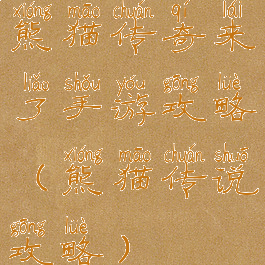 xióng māo chuán qí lái
熊猫传奇来
liǎo shǒu yóu gōng lüè
了手游攻略
xióng māo chuán shuō
（熊猫传说
gōng lüè
攻略）